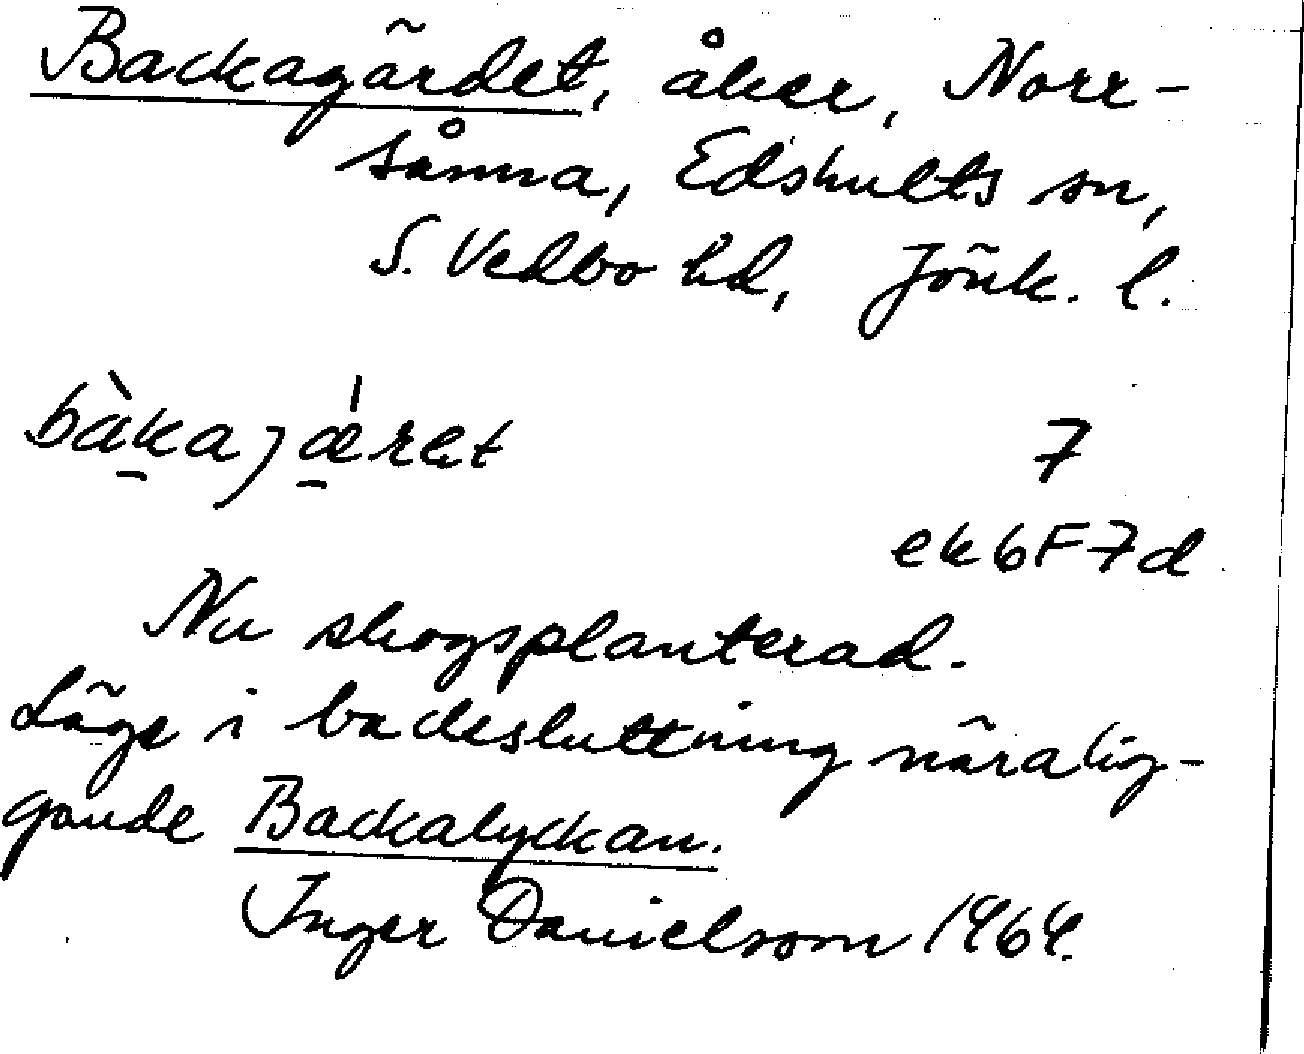 Backagärdet, åker, Norr-
sånna, Edshults sn,
S. Vedbo hd, Jönk. l.
bàka̠jǽ̠ret 7
ek6F7d
Nu skogsplanterad.
Läge i backesluttning näralig-
gande Backalyckan.
Inger Danielsson 1964.